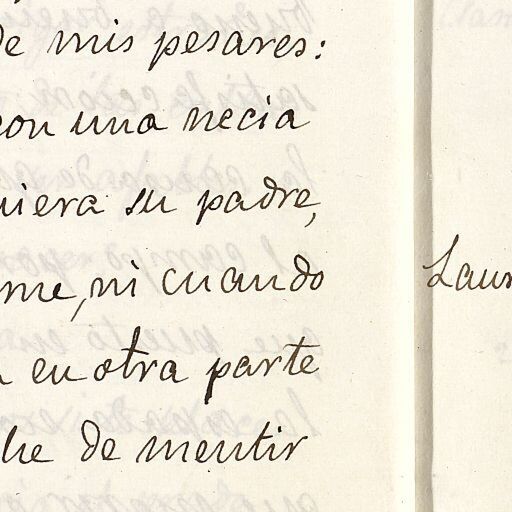 de mis pesares:
con una necia
quiera su padre,
me, ni cuando
en otra parte
he de mentir
Laur